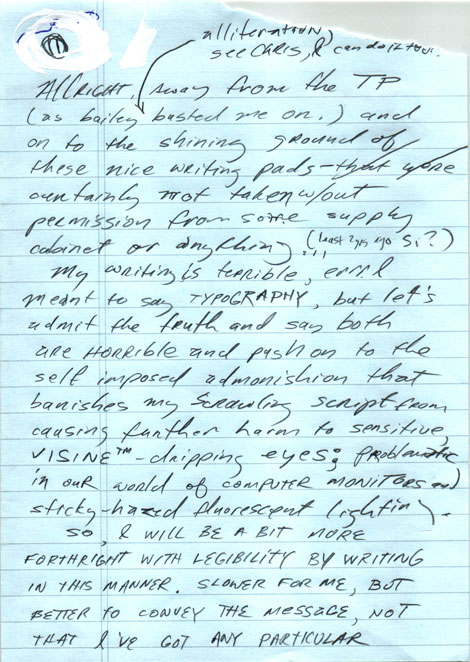 alliteration,
see CHRIS, I can do it too.
Allright. Away from the TP
(as bailey busted me on.) and
on to the shining ground of
these nice writing pads-that were
certainly not taken w/out
permission from some supply
cabinet or anything (least 2yrs ago Si?)
...
my writing is terrible, err I
meant to say TYPOGRAPHY, but let's
admit the truth and say both
are HORRIBLE and push on to the
self imposed admonishion that
banishes my scrawling script from
causing further harm to sensitive,
VISINE™-dripping eyes; problematic
in our world of COMPUTER MONITORS and
sticky-hazed fluorescent lighting.
so, I WILL BE A BIT MORE
FORTHRIGHT WITH LEGIBILITY BY WRITING
IN THIS MANNER. SLOWER FOR ME, BUT
BETTER TO CONVEY THE MESSAGE, NOT
THAT I'VE GOT ANY PARTICULAR